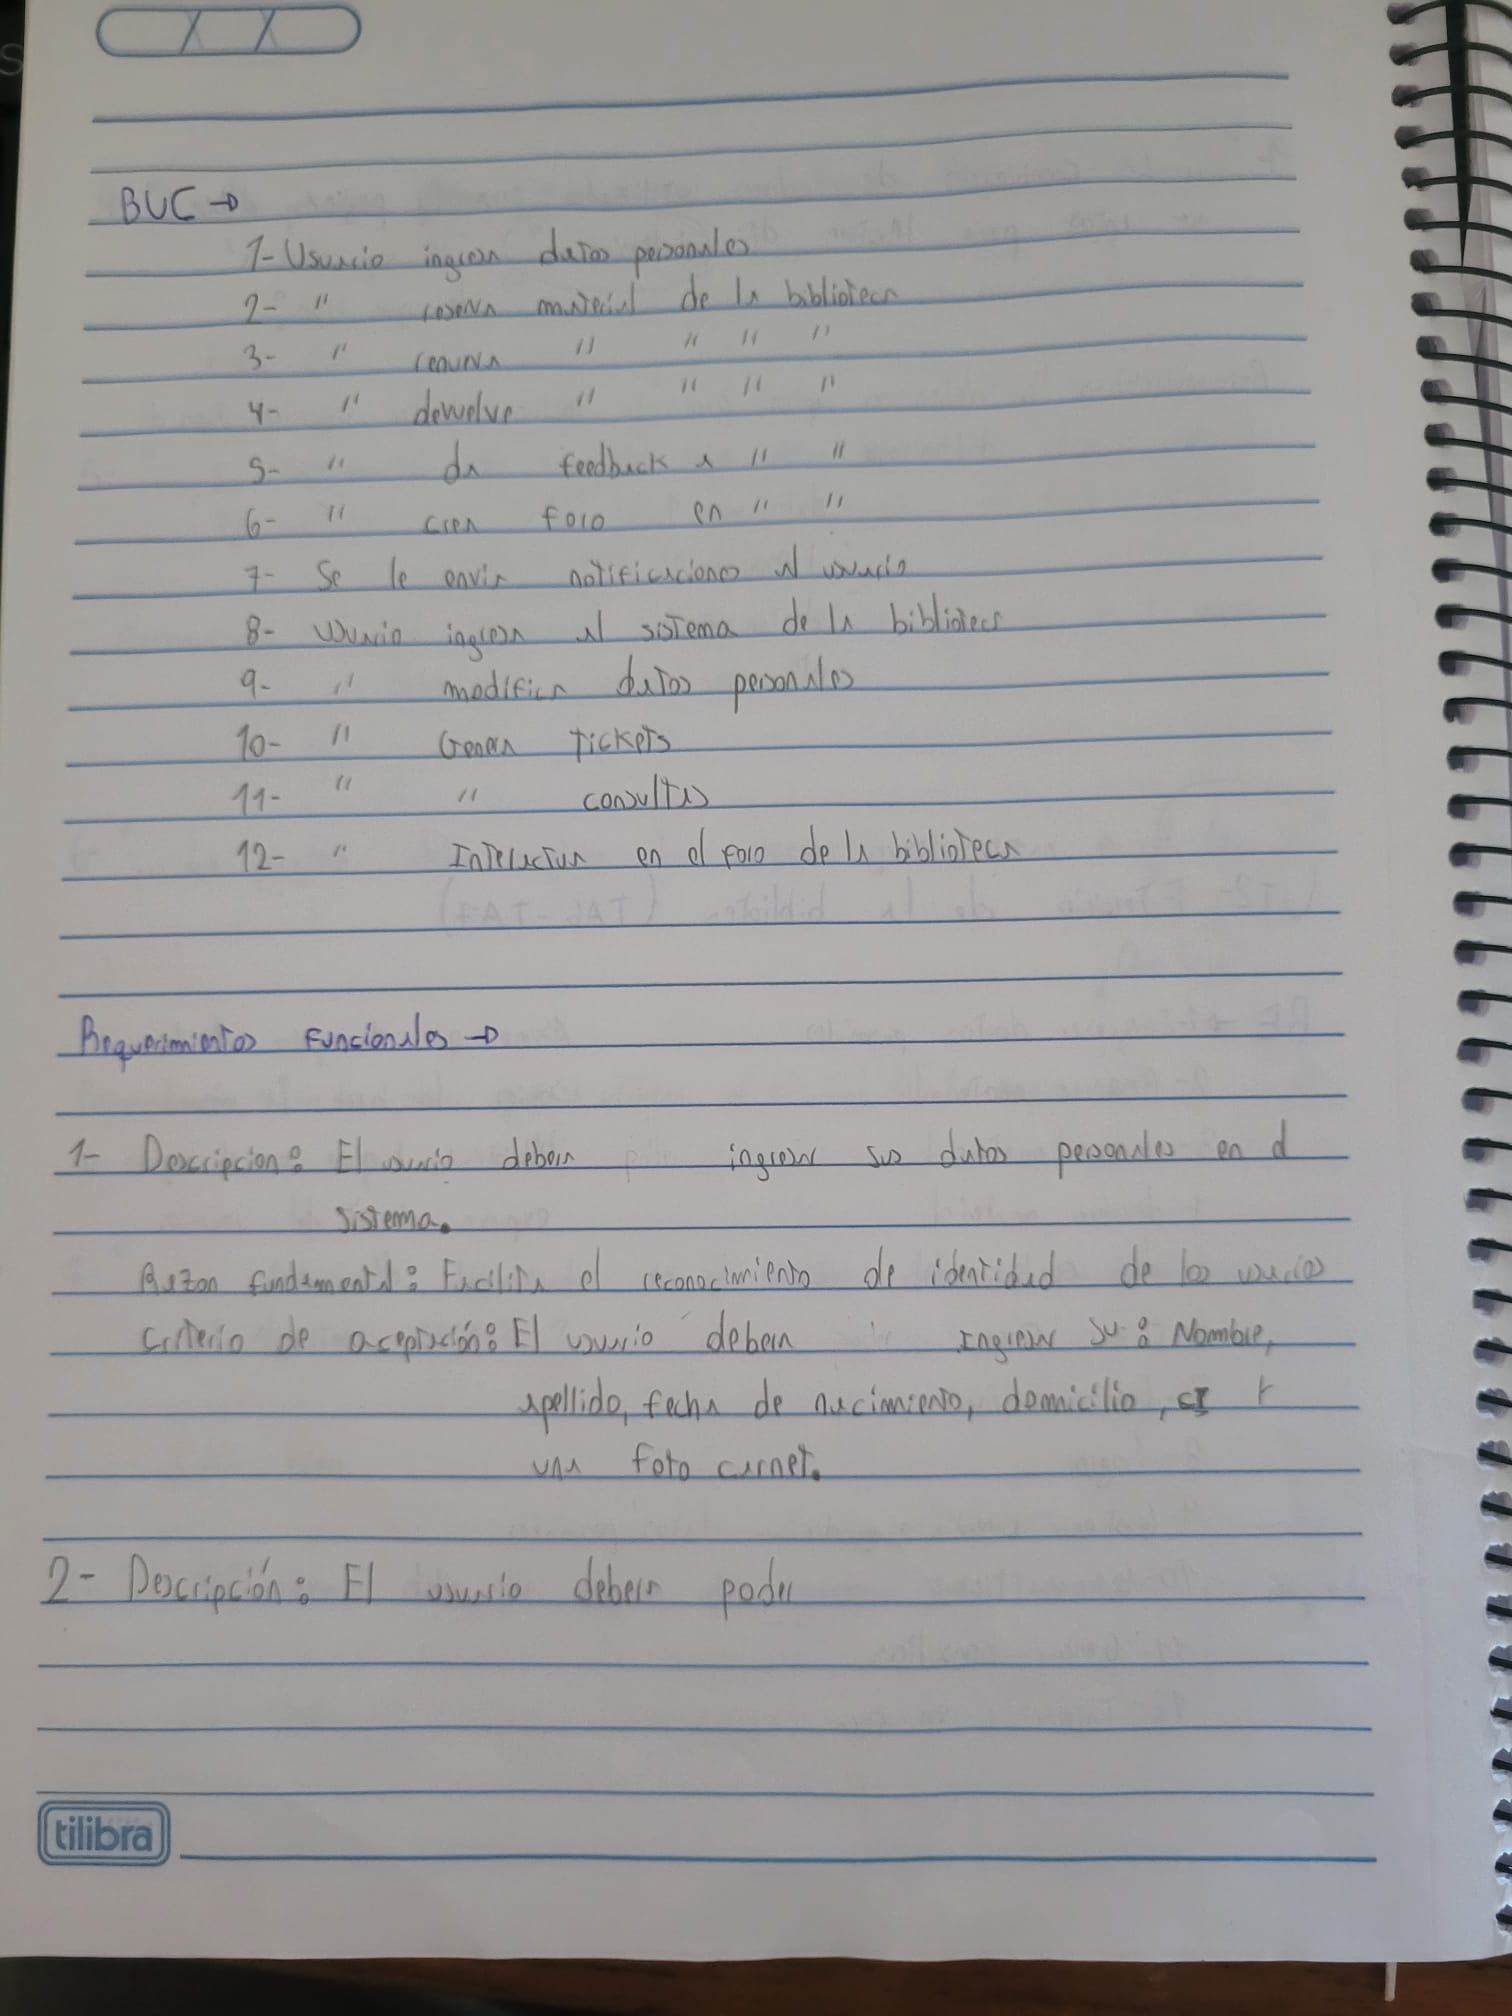 BUC →
1- Usuario ingresa datos personales
2- " reserva material de la biblioteca
3- " " " " "
4- " devuelve " " " "
5- " da feedback a " "
6- " crea foro en " "
7- Se le envia notificaciones al usuario
8- usuario ingresa al sistema de la biblioteca
9- " modifica datos personales
10- " Genera Tickets
11- " " consultas
12- " Interactua en el foro de la biblioteca
Requerimientos Funcionales →
1- Descripcion: El usuario debera ingresar sus datos personales en el
sistema.
Razon fundamental: Facilita el reconocimiento de identidad de los usuarios
Criterio de aceptación: El usuario debera Ingresar su: Nombre,
apellido, fecha de nacimiento, domicilio, CI Y
una foto carnet.
2- Descripción: El usuario debera poder
tilibra